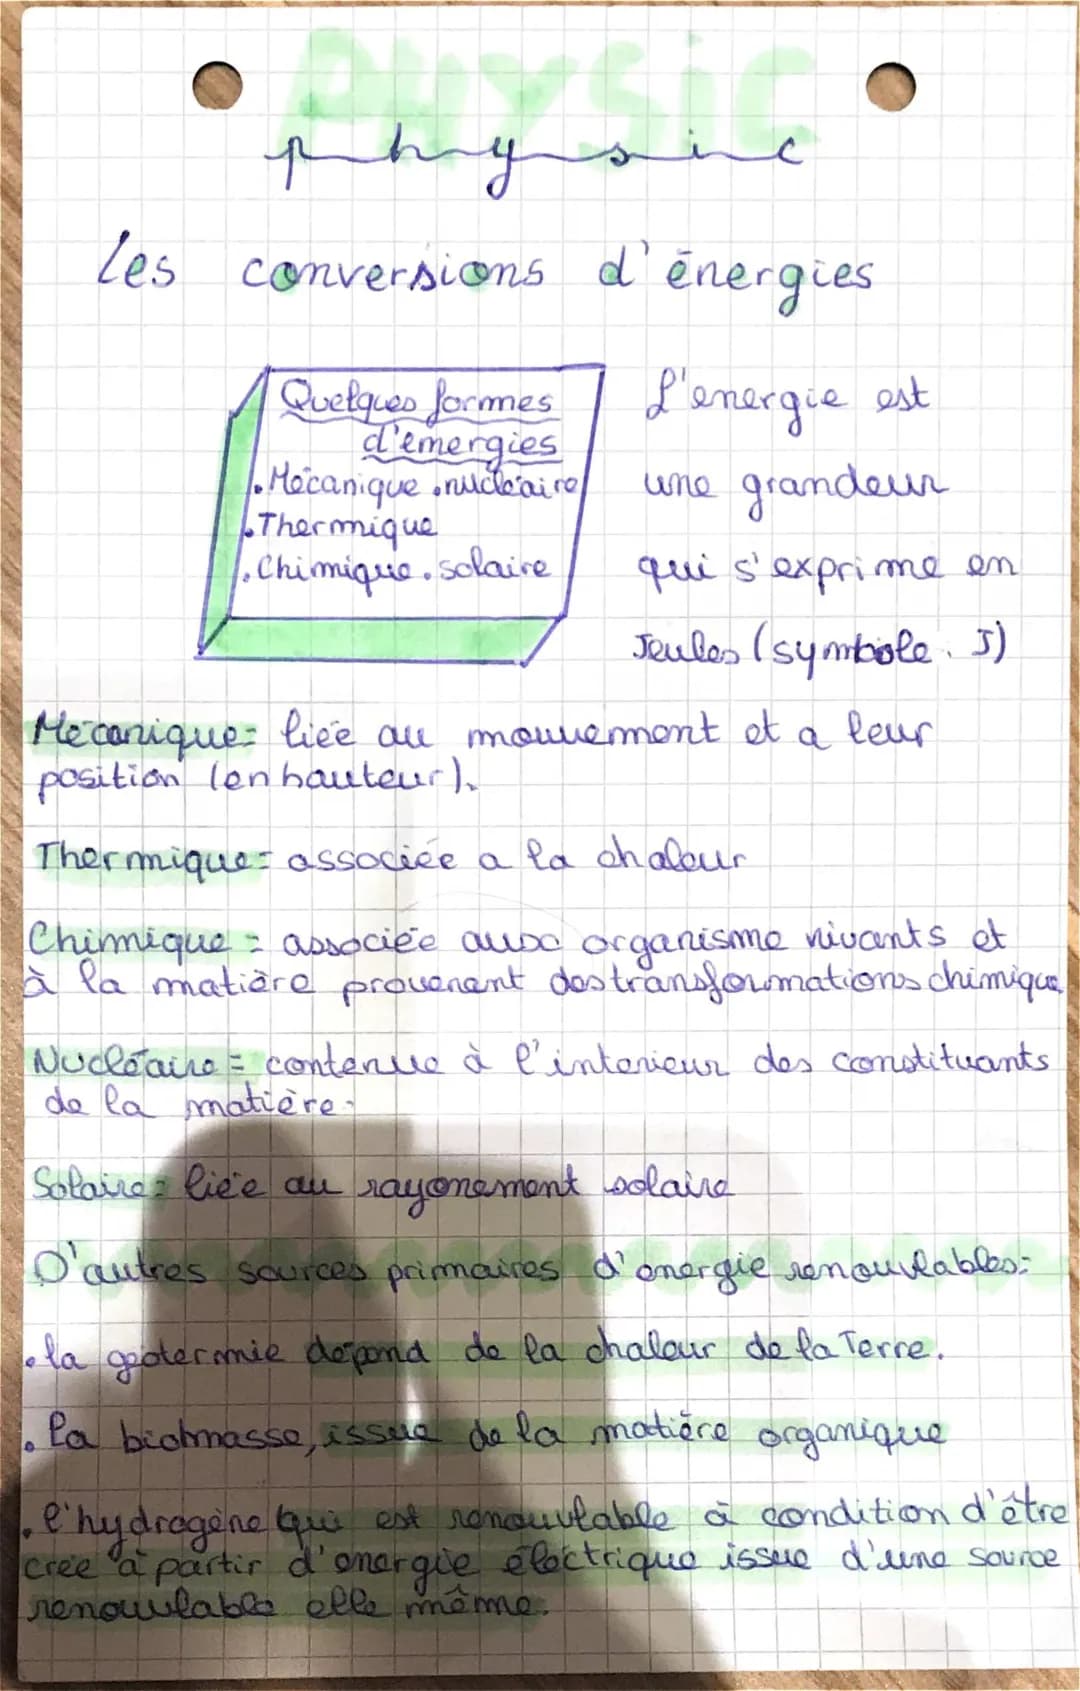 PHYSIC
physic
Les conversions d'énergies
Quelques formes
d'émergies
. Mécanique . nucléaire
. Thermique
. Chimique . solaire
L'energie est
une grandeur
qui s'exprime en
Jeules (symbole : J)
Mécanique = liée au mouvement et a leur
position (en hauteur).
Thermique = associée a la chaleur
Chimique = associée aux organisme vivants et
à la matière provenant des transformations chimique
Nucléaire = contenue à l'interieur des constituants
de la matière.
Solaire = liée au rayonement solaire
D'autres sources primaires d'énergie renouvlables :
. la géotermie dépend de la chaleur de la Terre.
. la biobmasse, issue de la matière organique
. l'hydrogène qui est renouvlable à condition d'être
crée à partir d'energie électrique issue d'une source
renouvlable elle même.